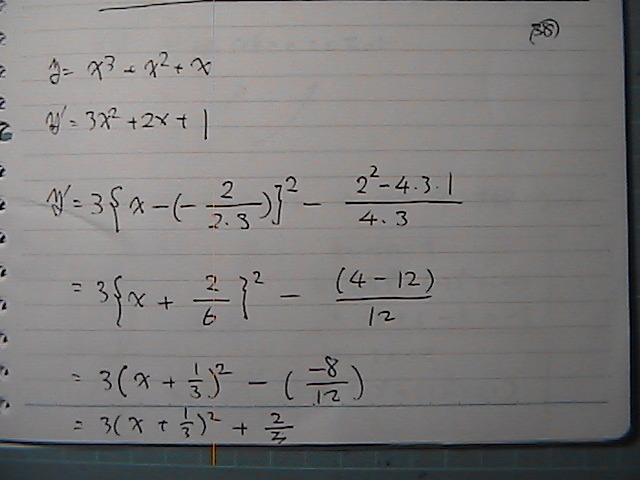 (38)
y = x³ + x² + x
y' = 3x² + 2x + 1
y' = 3{x - (- 2/2·3)}² - (2² - 4·3·1)/(4·3)
= 3{x + 2/6}² - (4 - 12)/12
= 3(x + 1/3)² - (-8/12)
= 3(x + 1/3)² + 2/3